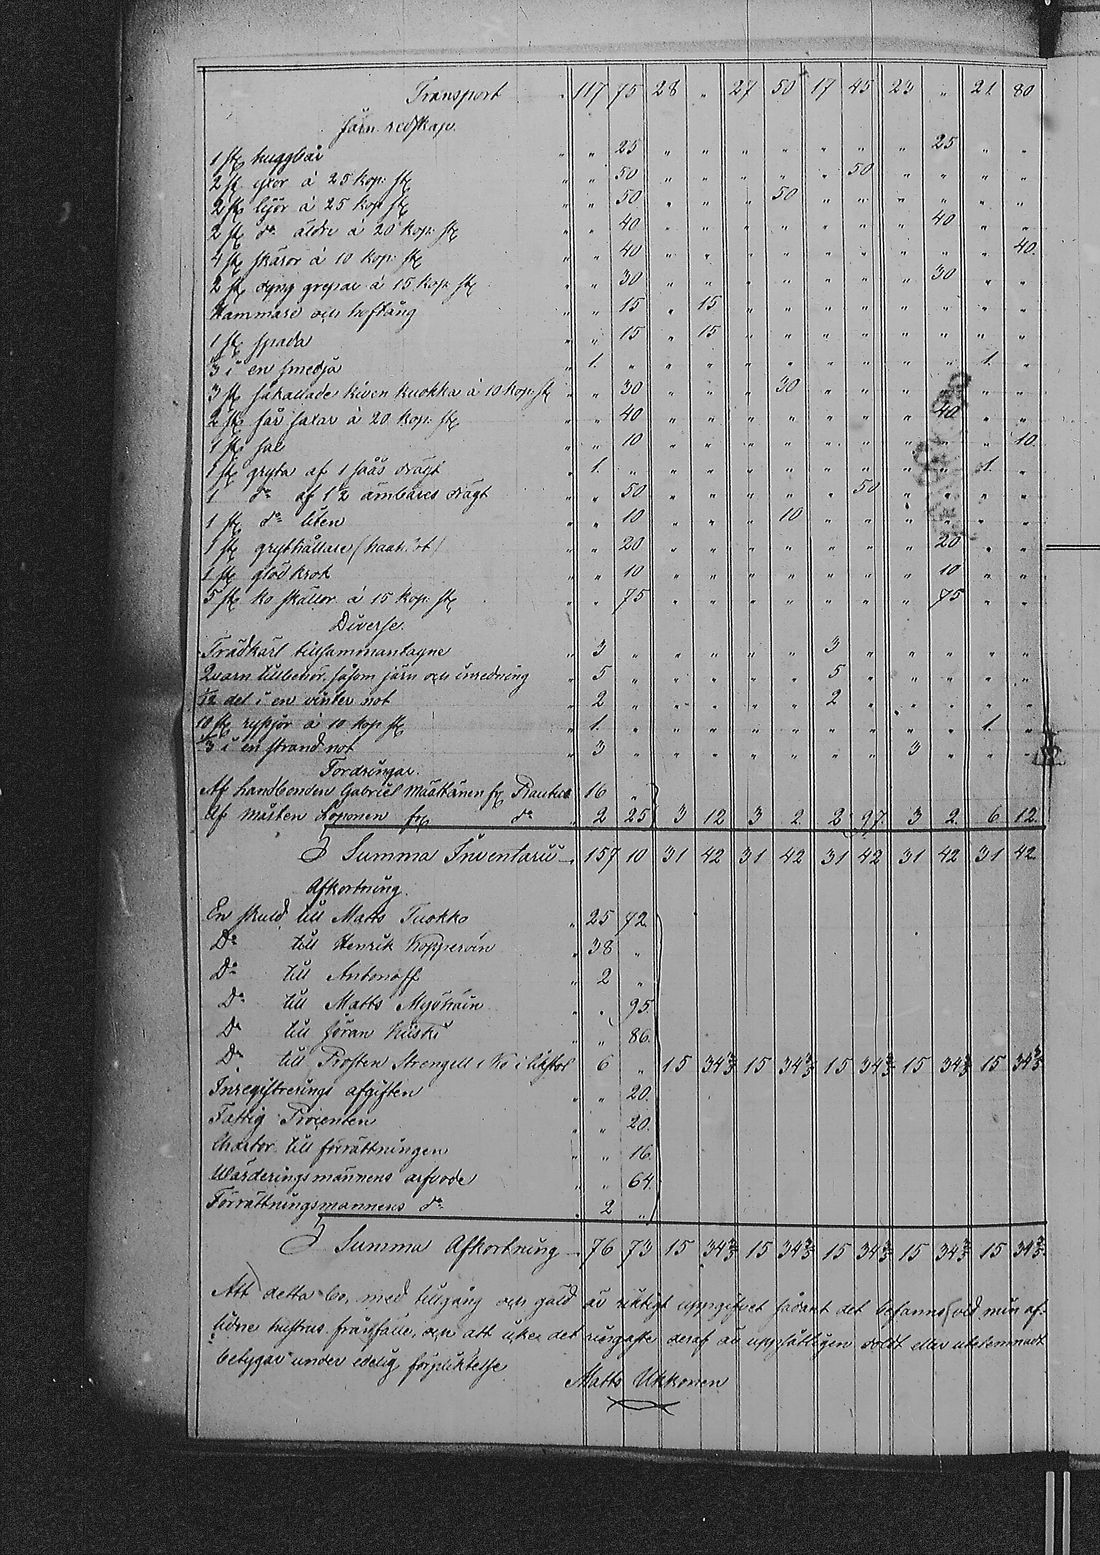 Transport 117 75 28 " 27 50 17 45 23 " 21 80
Järn redskap.
1 st huggbär " " 25 " " " " " " " 25 " "
2 st yxor á 25 kop. st " " 50 " " " " " 50 " " " "
2 st lijor á 25 kop st " " 50 " " " 50 " " " " " "
2 st do äldre á 20 kop. st " " 40 " " " " " " " 40 " "
4 st skäror á 10 kop. st " " 40 " " " " " " " " " 40
2 st dyng grepar á 15 kop. st " " 30 " " " " " " " 30 " "
Hammare och hoftång " " 15 " 15 " " " " " " " "
1 st spada " " 15 " 15 " " " " " " " "
1/3 i en smedja " 1 " " " " " " " " " 1 "
3 st såkallade kiven kuokka á 10 kop. st " " 30 " " " 30 " " " " " "
2 st får saxar á 20 kop. st " " 40 " " " " " " " 40 " "
1 st " " 10 " " " " " " " " " 10
1 st gryta af 1 såås drägt " 1 " " " " " " " " " 1 "
1 do af 1 1/2 ämbares drägt " " 50 " " " " " 50 " " " "
1 st do liten " " 10 " " " 10 " " " " " "
1 st grythållare " " 20 " " " " " " " 20 " "
1 st glöd krok " " 10 " " " " " " " 10 " "
5 st ko skällor á 15 kop. st " " 75 " " " " " " " 75 " "
Diverse.
Trädkärl tillsammantagne " 3 " " " " " 3 " " " " "
Qvarn tillbehör, såsom järn och inredning " 5 " " " " " 5 " " " " "
1/2 del i en vinter not " 2 " " " " " 2 " " " " "
10 st ryssjor á 10 kop st " 1 " " " " " " " " " 1 "
1/3 i en strand not " 3 " " " " " " " 3 " " "
Fordringar.
Af landbonden Gabriel Määttänen fr Rautus 16 "
Af Mårten Loponen fr do " 2 25 3 12 3 2 2 97 3 2 6 12
Summa Inventarii 157 10 31 42 31 42 31 42 31 42 31 42
Afkortning.
En skuld till Matts Tuokko " 25 72
Do till Henrik Kopperoin " 38 "
Do till Antonoff " 2 "
Do till Matts " " 95
Do till Jöran Kiiski " " 86
Do till Prosten Strengell 6 " 15 34 3/5 15 34 3/5 15 34 3/5 15 34 3/5 15 34 3/5
Inregistrerings afgiften " " 20
Fattig Procenten " " 20
Chartor till förrättningen " " 16
Värderingsmännens arfvode " " 64
Förrättningsmannens do " 2 "
Summa Afkortning 76 73 15 34 3/5 15 34 3/5 15 34 3/5 15 34 3/5 15 34 3/5
Att detta bo, med tillgång och gäld är riktigt uppgifvet sådant det befanns vid min af-
lidne hustrus frånfälle, och att icke det ringaste deraf är uppsåtligen doldt eller utelemnadt
betygar under edelig förpliktelse
Matts Ukkonen